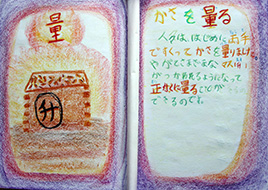 量
升
かさを量る
人々は、はじめに両手
ですくってかさを量りました。
やがてさまざまな
がつかえるようになって
正かくに量ることが
できるのです。